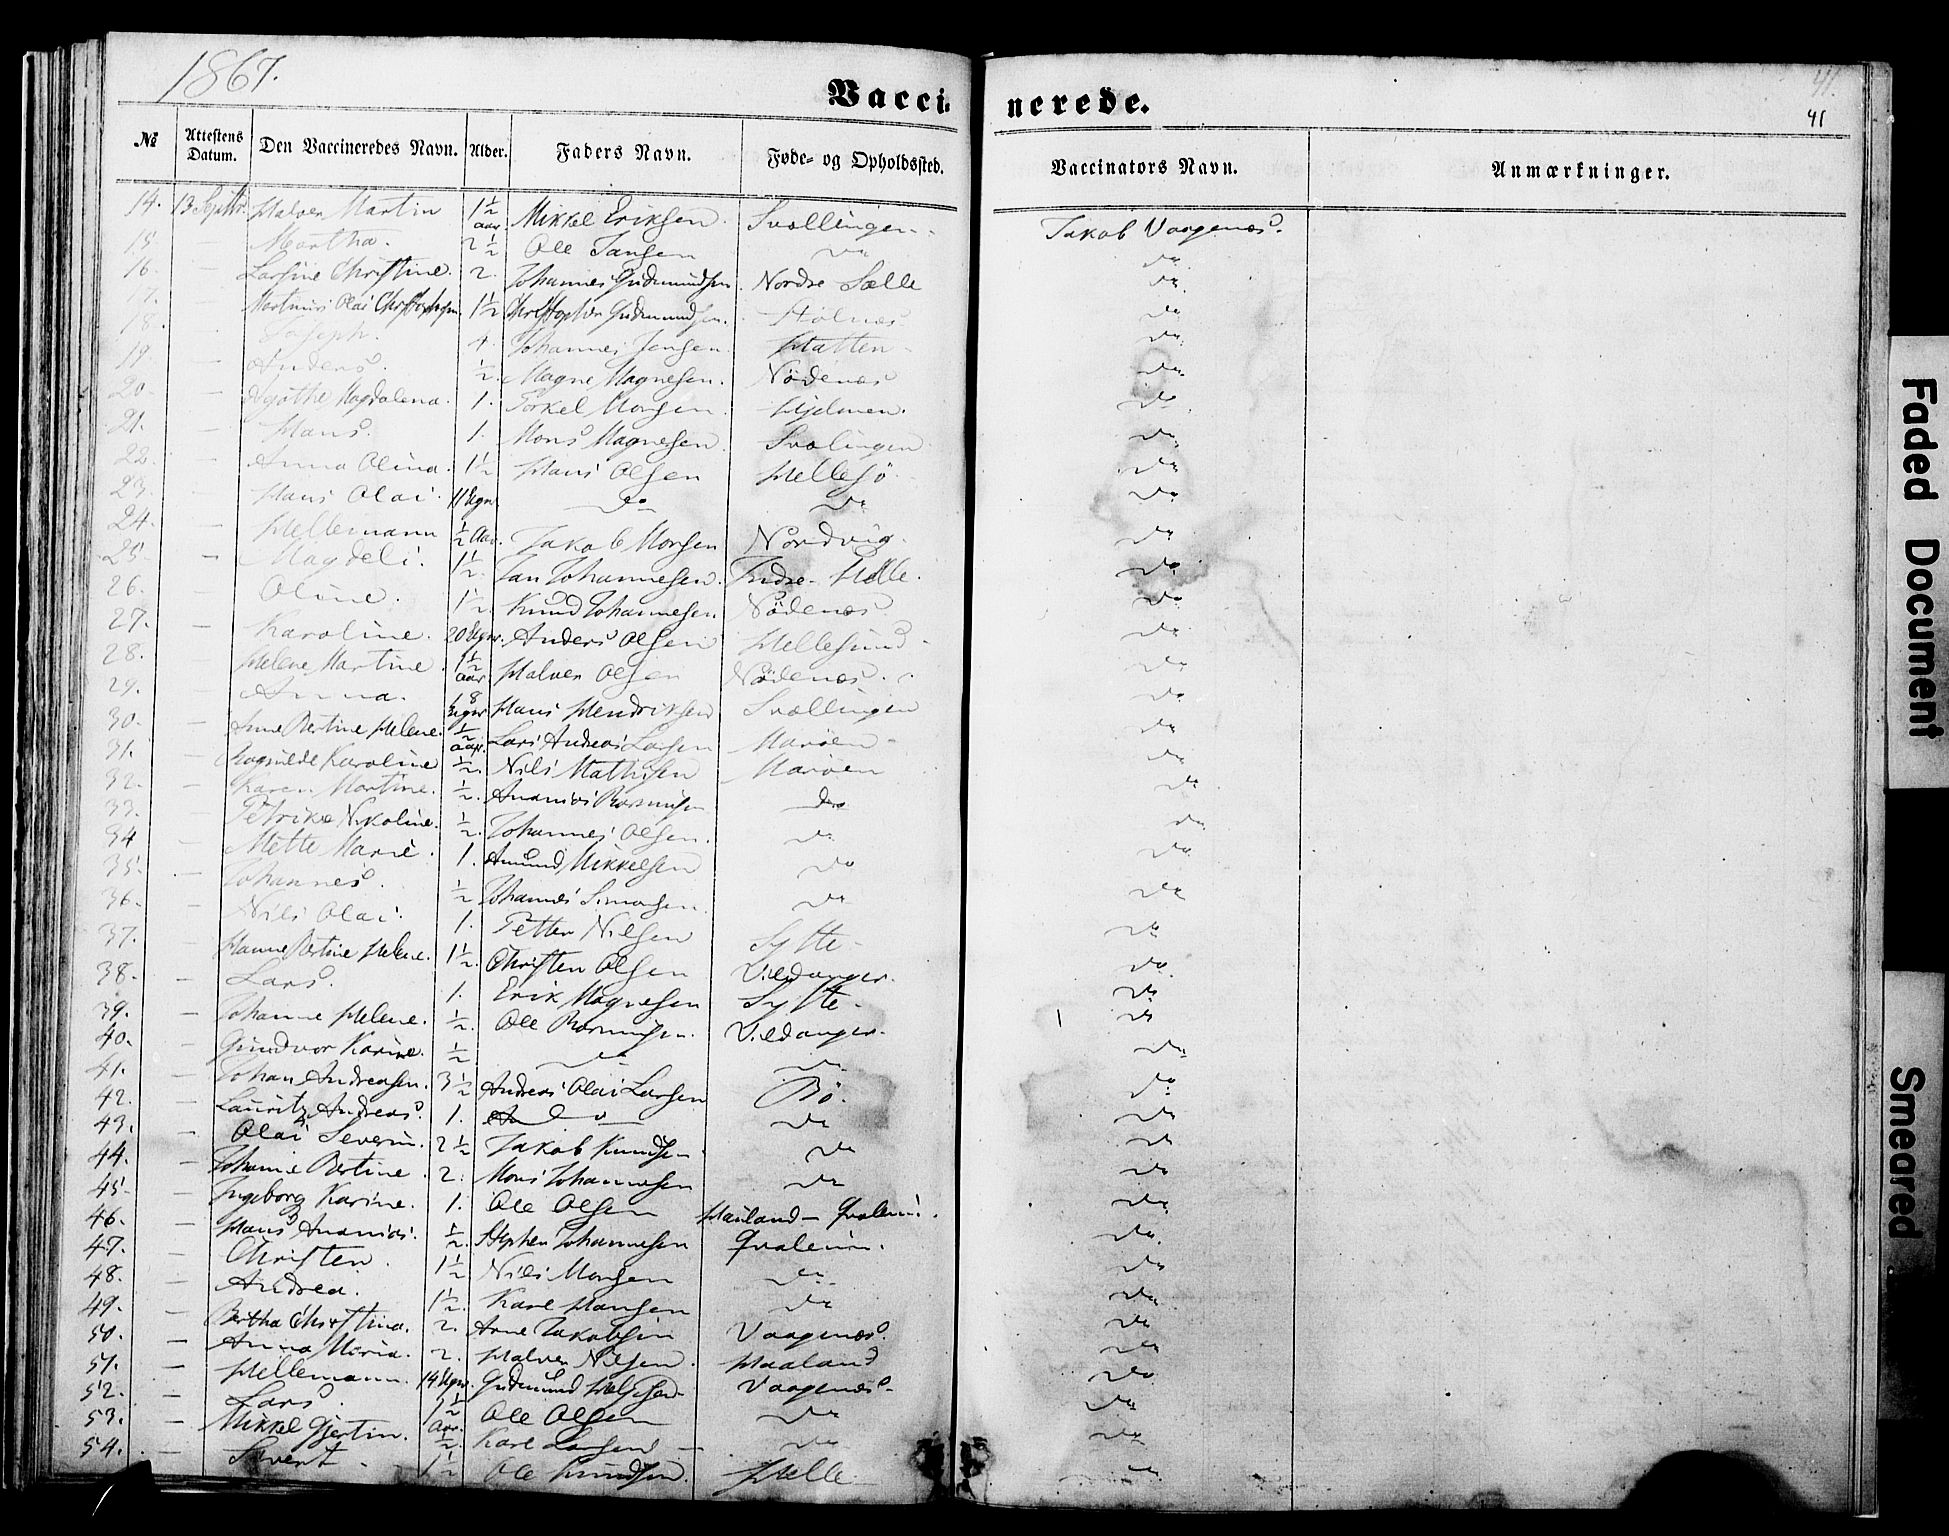 1867.
41.
41
Vaccinerede.
№ Attestens Datum. Den Vaccineredes Navn. Alder. Faders Navn. Føde- og Opholdssted. Vaccinators Navn. Anmærkninger.
14. 13 Septbr. Halver Martin 1½ aar. Mikkel Eriksen. Svællingen. Jakob Vaagenæs.
15. — Martha. 2½ Ole Jansen do do
16. — Larsine Christine. 2. Johannes Gudmundsen Nordre Sælle do
17. — Martinus Olai Christophersen 1½ Christopher Gudmundsen. Holnæs do
18. — Joseph. 4. Johannes Jensen Hatten do
19. — Anders. ½. Magne Magnesen. Nödenæs do
20. — Agathe Magdalena. 1. Torkel Monsen Hjelmen. do
21. — Hans. 1. Mons Magnesen Svalingen do
22. — Anna Olina. 1½ Hans Olsen Hellesö do
23. — Hans Olai. 11 Ugr. do do do
24. Hellemann ½ Aar. Jakob Monsen Nordvig. do
25 — Magdeli. 1½. Jan Johannesen. Indre Helle. do
26. Oline. 1½. Knud Johannesen. Nödenæs do
27. — Karoline. 20 Ugr. Anders Olsen Hellesund do
28. — Helene Martine. 1½ aar. Halver Olsen Nödenæs. do
29. Anna. 18 Ugr. Hans Hendriksen Svællingen do
30. — Bertine Helene. ½ aar. Lars Andreas Larsen Maröen do
31. — Magnilde Karoline ½. Nils Mathisen Maröen do
32. — Karen Martine. ½. Ananias Rasmusen do do
33. Petrike Nikoline. ½. Johannes Olsen. do do
34 — Mette Marie. 1. Amund Mikkelsen do do
35. — Johannes. ½ Johannes Simonsen. do do
36. — Nils Olai. 1. Petter Nilsen Sylte do
37. — Hanne Bertine Helene. 1½. Christen Olsen Vildanger. do
38. — Lars. 1. Erik Magnesen Sylte do
39. — Johanne Helene. ½. Ole Rasmusen. Vildanger. do
40. — Gundvor Karine. ½ do do do
41. — Johan Andreasen. 3½ Andreas Olai Larsen Bö. do
42. — Lauritz Andreas. 1. do do do
43. — Olai Severin. 2½ Jakob Knudsen do do
44. — Johanne Bertine. 2. Mons Johannesen do do
45 — Ingeborg Karine. 1. Ole Olsen Hauland — do
46. — Hans Ananias. ½. Stephen Johannesen Qvaleim. do
47. — Christen. 1½ Nils Monsen do do
48. — Andrea. 1½. Karl Hansen do do
49. — Bertha Christina. 2. Arne Jakobsen Vaagenæs. do
50. — Anna Maria. 2. Halver Nilsen. Haaland do
51. — Hellemann. 14 Ugr. Gudmund Helgesen Vaagenæs. do
52. — Lars. 1½ Aar. Ole Olsen do do
53. — Mikkel Gjertin. ½. Karl Larsen do do
54. — Sivert 1½ Ole Knudsen. Helle do
Faded Document
Smeared